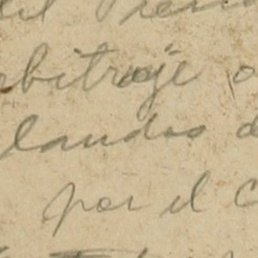 del Presi
rbitraje o
laudos d
por el c